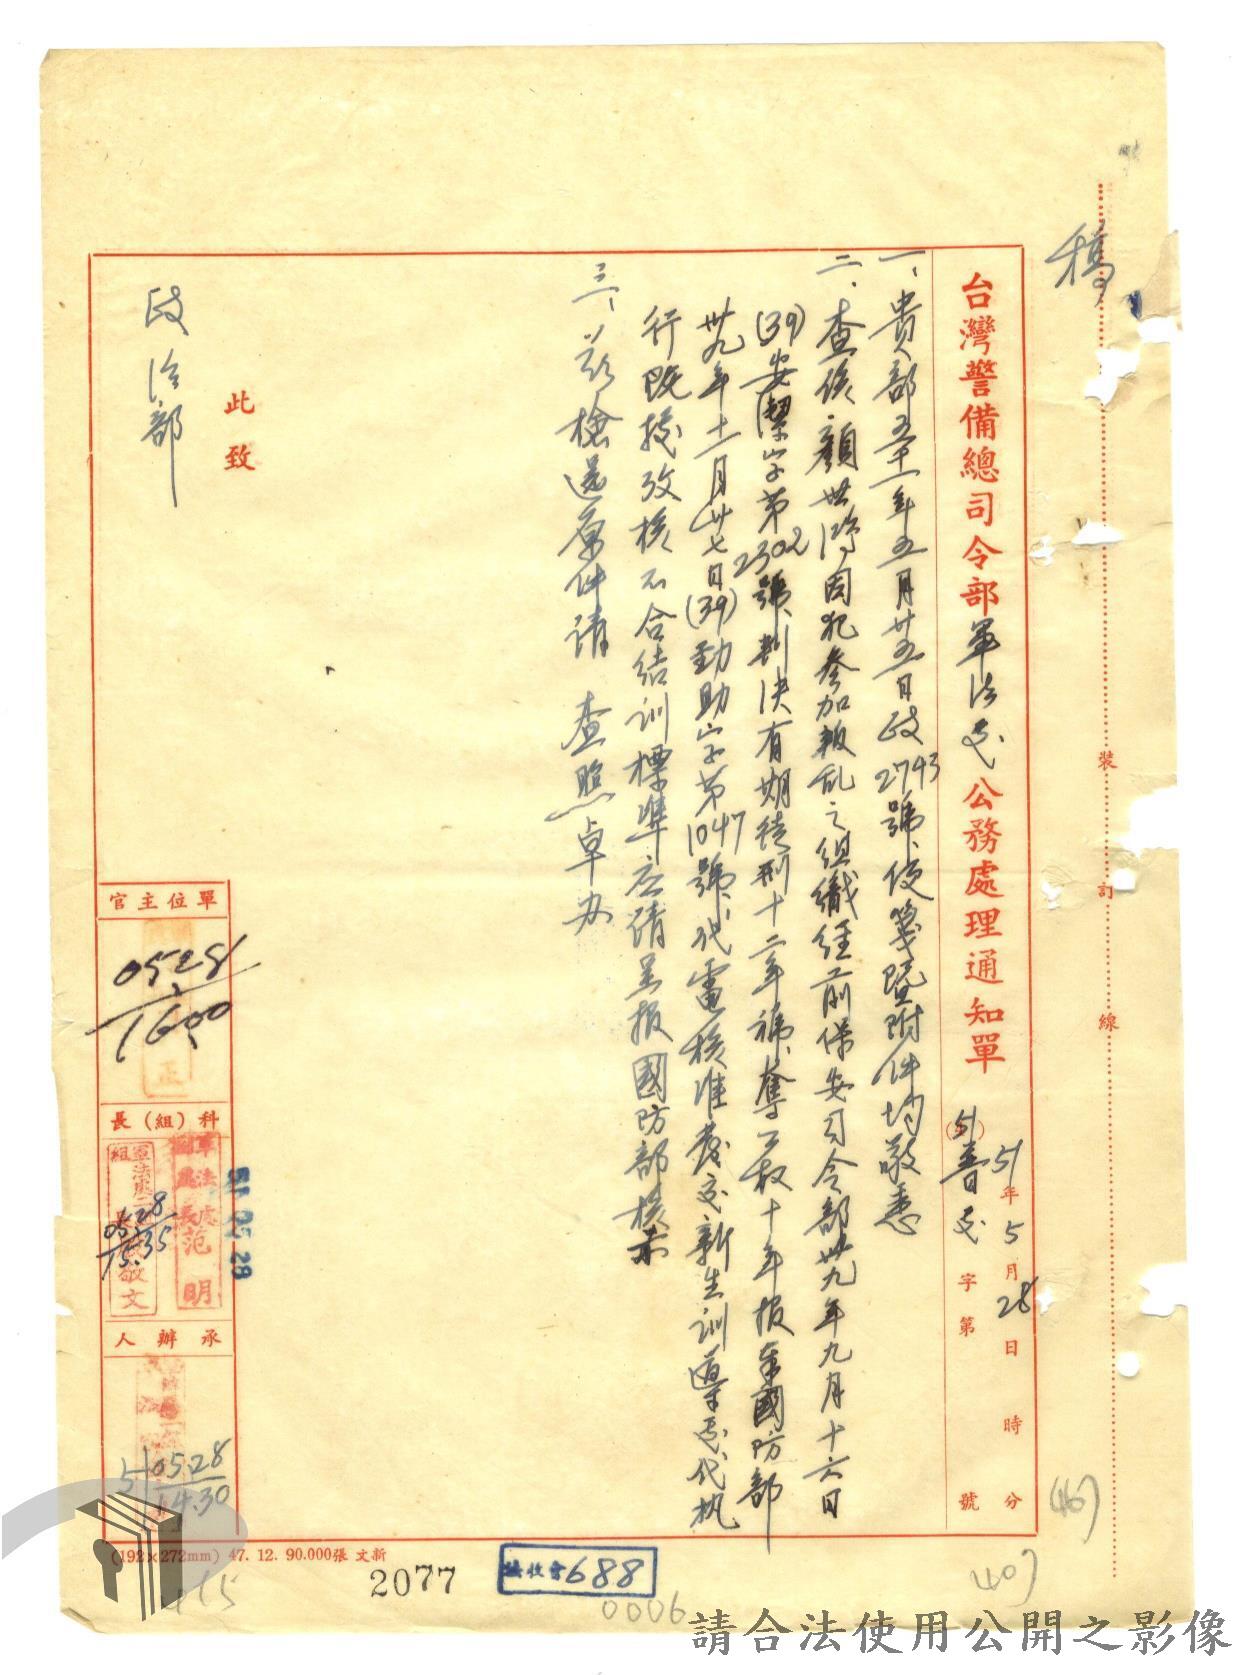 稿
裝訂線
台灣警備總司令部軍法處公務處理通知單
51年5月28日 時 分
(51)普日 字第 號
一、貴部五十一年五月廿五日政2743號便箋暨附件均敬悉
二、查係顏世鴻因犯參加叛乱之組織經前保安司令部卅九年九月十六日
(39)安潔字第2302號判決有期徒刑十二年褫奪公权十年报奉國防部
卅九年十一月廿七日(39)勁助字第1047號代電核准發交新生訓導處代执
行既接攷核不合結訓標準应請呈报國防部核示
三、茲檢還原件請 查照卓办
此致
政治部
單位主官
0528/1600
正
科(組)長
軍法處
范明
敬文
0528/1535
51 05 28
承辦人
51 0528/14.30
(192×272mm) 47. 12. 90.000張 文新
2077
688
0006
115
(46)
(40)
請合法使用公開之影像